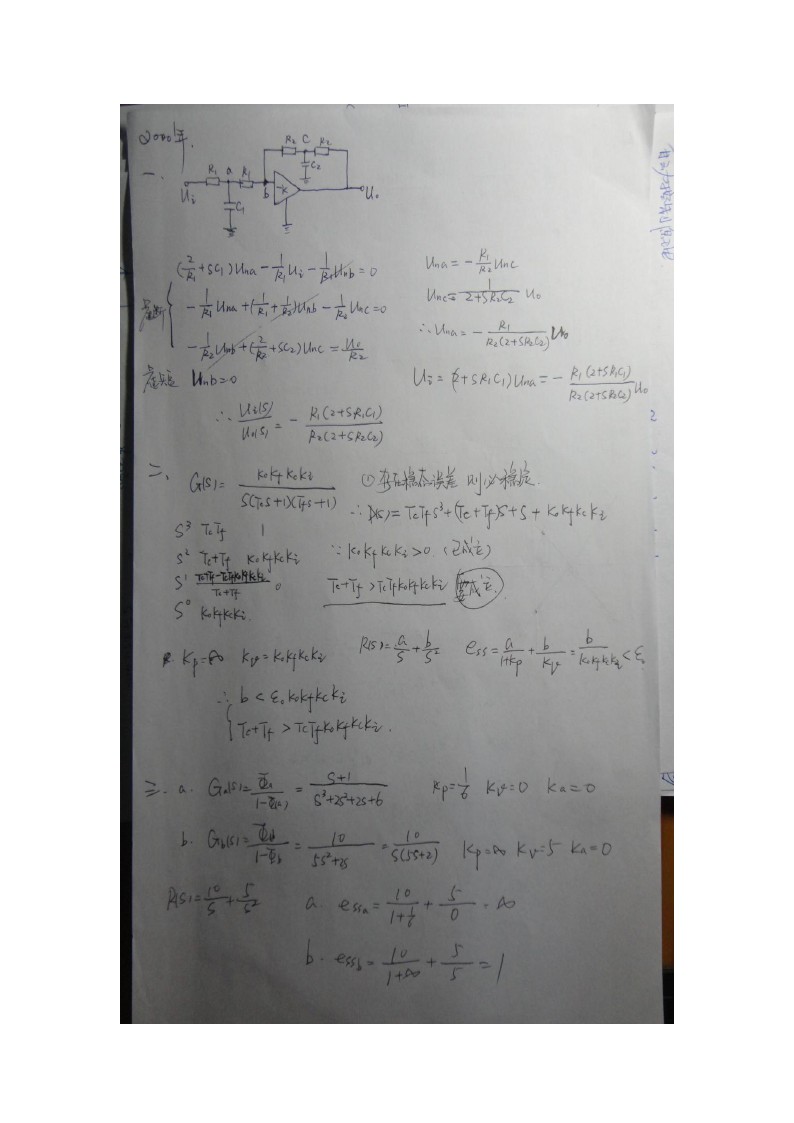 2000年.
一.
R₂ C R₂
R₁ a R₁ C₂
Uᵢ b -K U₀
C₁
(2/R₁+SC₁)Una - 1/R₁Uᵢ - 1/R₁Unb = 0
Una = - R₁/R₂ Unc
虚断 - 1/R₁Una + (1/R₁ + 1/R₂)Unb - 1/R₂Unc = 0
Unc = 1/(2+SR₂C₂) U₀
- 1/R₂Unb + (2/R₂+SC₂)Unc = U₀/R₂
∴ Una = - R₁/(R₂(2+SR₂C₂)) U₀
虚短 Unb = 0
Uᵢ = (2+SR₁C₁)Una = - R₁(2+SR₁C₁)/(R₂(2+SR₂C₂)) U₀
∴ Uᵢ(S)/U₀(S) = - R₁(2+SR₁C₁)/(R₂(2+SR₂C₂))
二、 G(S) = K₀KfKcKᵢ/(S(TcS+1)(TfS+1)) ① 存在稳态误差 则必稳定.
∴ D(S) = TcTfS³+(Tc+Tf)S+S+K₀KfKcKᵢ
S³ TcTf 1
S² Tc+Tf K₀KfKcKᵢ ∵ K₀KfKcKᵢ>0 (已成立)
S¹ (Tc+Tf-TcTfK₀KfKcKᵢ)/(Tc+Tf) 0 Tc+Tf > TcTfK₀KfKcKᵢ 要成立.
S⁰ K₀KfKcKᵢ.
Kp=∞ Kv=K₀KfKcKᵢ R(S)= a/S + b/S² ess = a/(1+Kp) + b/Kv = b/(K₀KfKcKᵢ) < ε₀
∴ b < ε₀K₀KfKcKᵢ
Tc+Tf > TcTfK₀KfKcKᵢ.
三. a. Ga(S) = Φa/(1-Φ(a)) = (S+1)/(S³+2S²+2S+6) Kp=1/6 Kv=0 Ka=0
b. Gb(S) = Φb/(1-Φb) = 10/(5S²+2S) = 10/(S(5S+2)) Kp=∞ Kv=5 Ka=0
R(S) = 10/S + 5/S² a. essa = 10/(1+1/6) + 5/0 = ∞
b. essb = 10/(1+∞) + 5/5 = 1